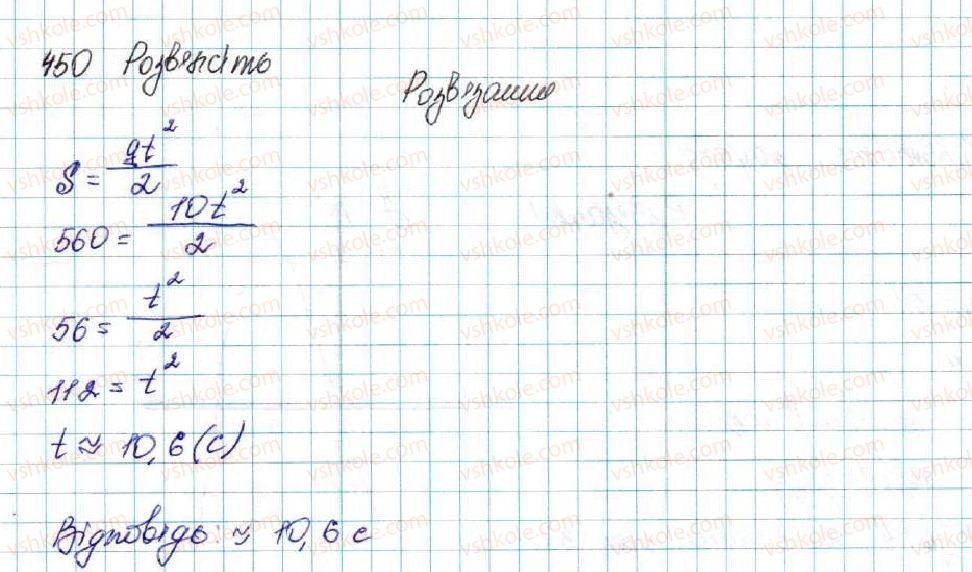 450 Розв'яжіть
Розв'язання
S = gt²/2
560 = 10t²/2
56 = t²/2
112 = t²
t ≈ 10,6 (с)
Відповідь: ≈ 10,6 с
vshkole.com